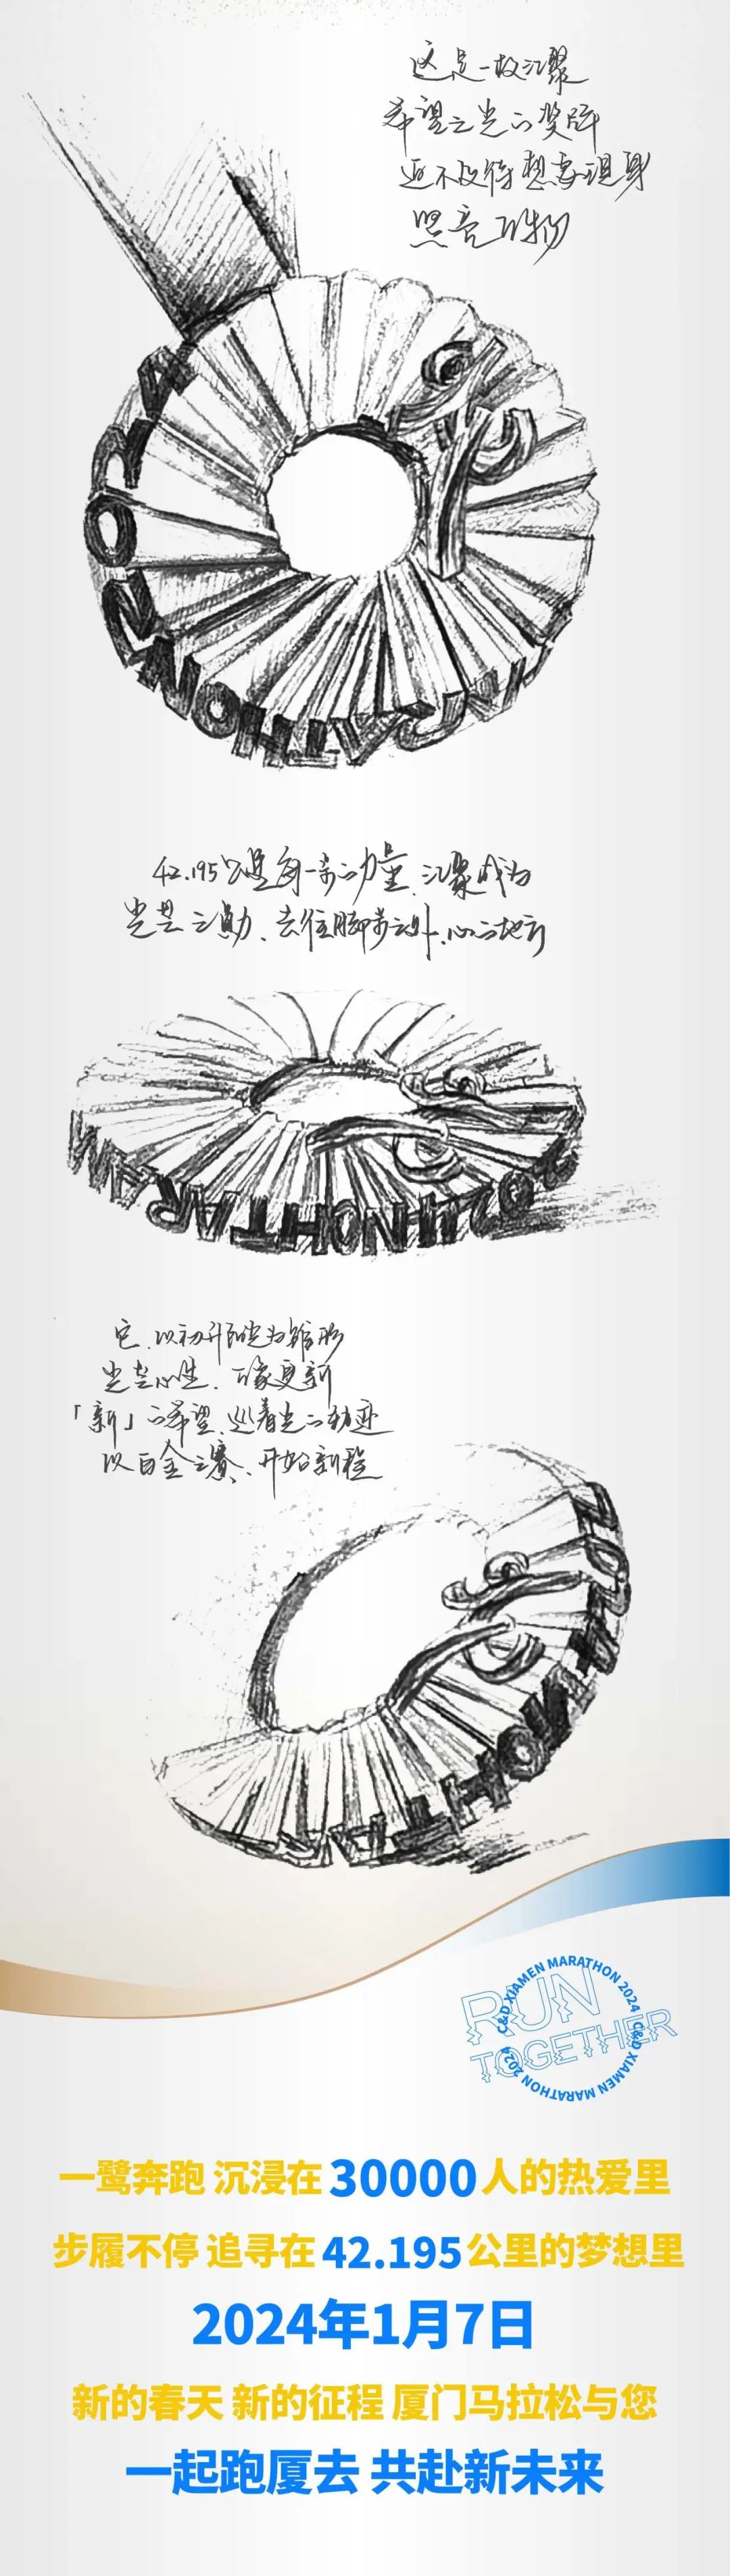 这是一枚汇聚
希望之光的奖牌
迫不及待想要现身
照亮万物
XIAMEN MARATHON
42.195公里每一步的力量,汇聚成为
光芒之勋、去往脚步之外,心之地方
MARATHON
它,以初升阳光为雏形
光芒心生,万象更新
「新」的希望,巡着光的轨迹
以白金之赛、开始新程
MARATHON
RUN
TOGETHER
C&D XIAMEN MARATHON 2024 C&D XIAMEN MARATHON 2024
一鹭奔跑 沉浸在30000人的热爱里
步履不停 追寻在42.195公里的梦想里
2024年1月7日
新的春天 新的征程 厦门马拉松与您
一起跑厦去 共赴新未来